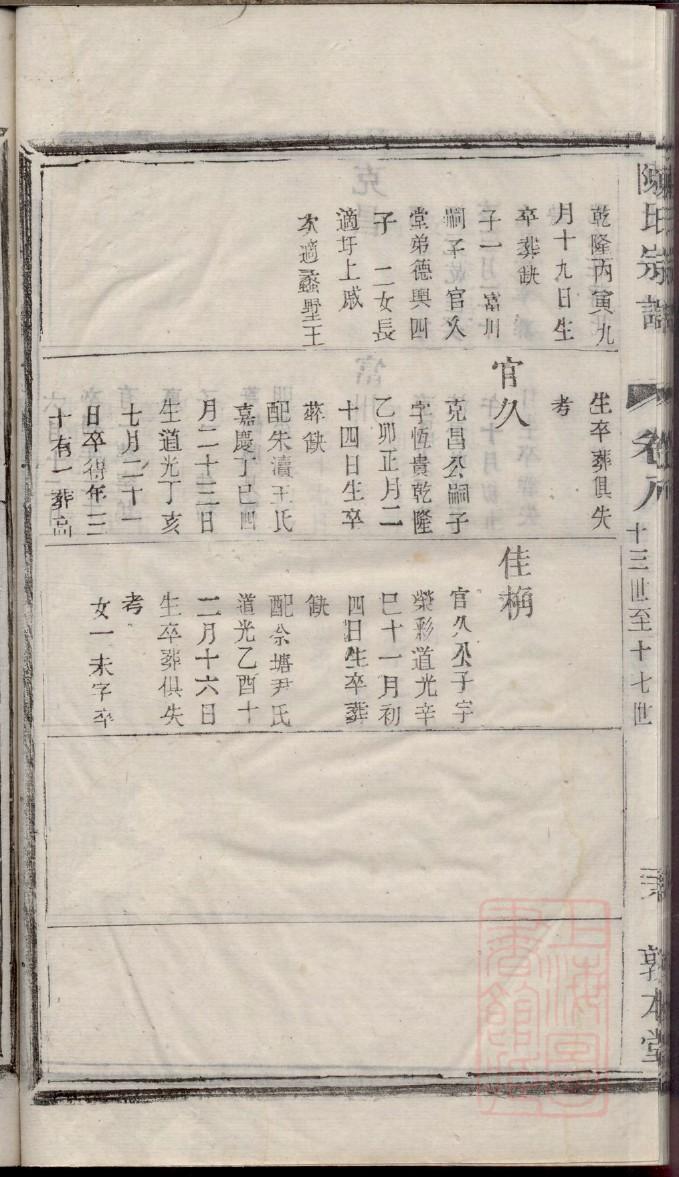 陳氏宗譜
卷八
十三世至十七世
敦本堂
乾隆丙寅九
月十九日生
卒葬缺
子一 富川
嗣子官久
堂弟德興四
子 二女長
適圩上戚
次適蠡墅王
生卒葬俱失
考
官久
克昌公嗣子
字恆貴乾隆
乙卯正月二
十四日生卒
葬缺
配朱瀆王氏
嘉慶丁巳四
月二十三日
生道光丁亥
七月二十一
日卒得年三
十有一葬高
佳
官久公子字
榮彩道光辛
巳十一月初
四日生卒葬
缺
配佘塘尹氏
道光乙酉十
二月十六日
生卒葬俱失
考
女一未字卒
上海圖書館藏